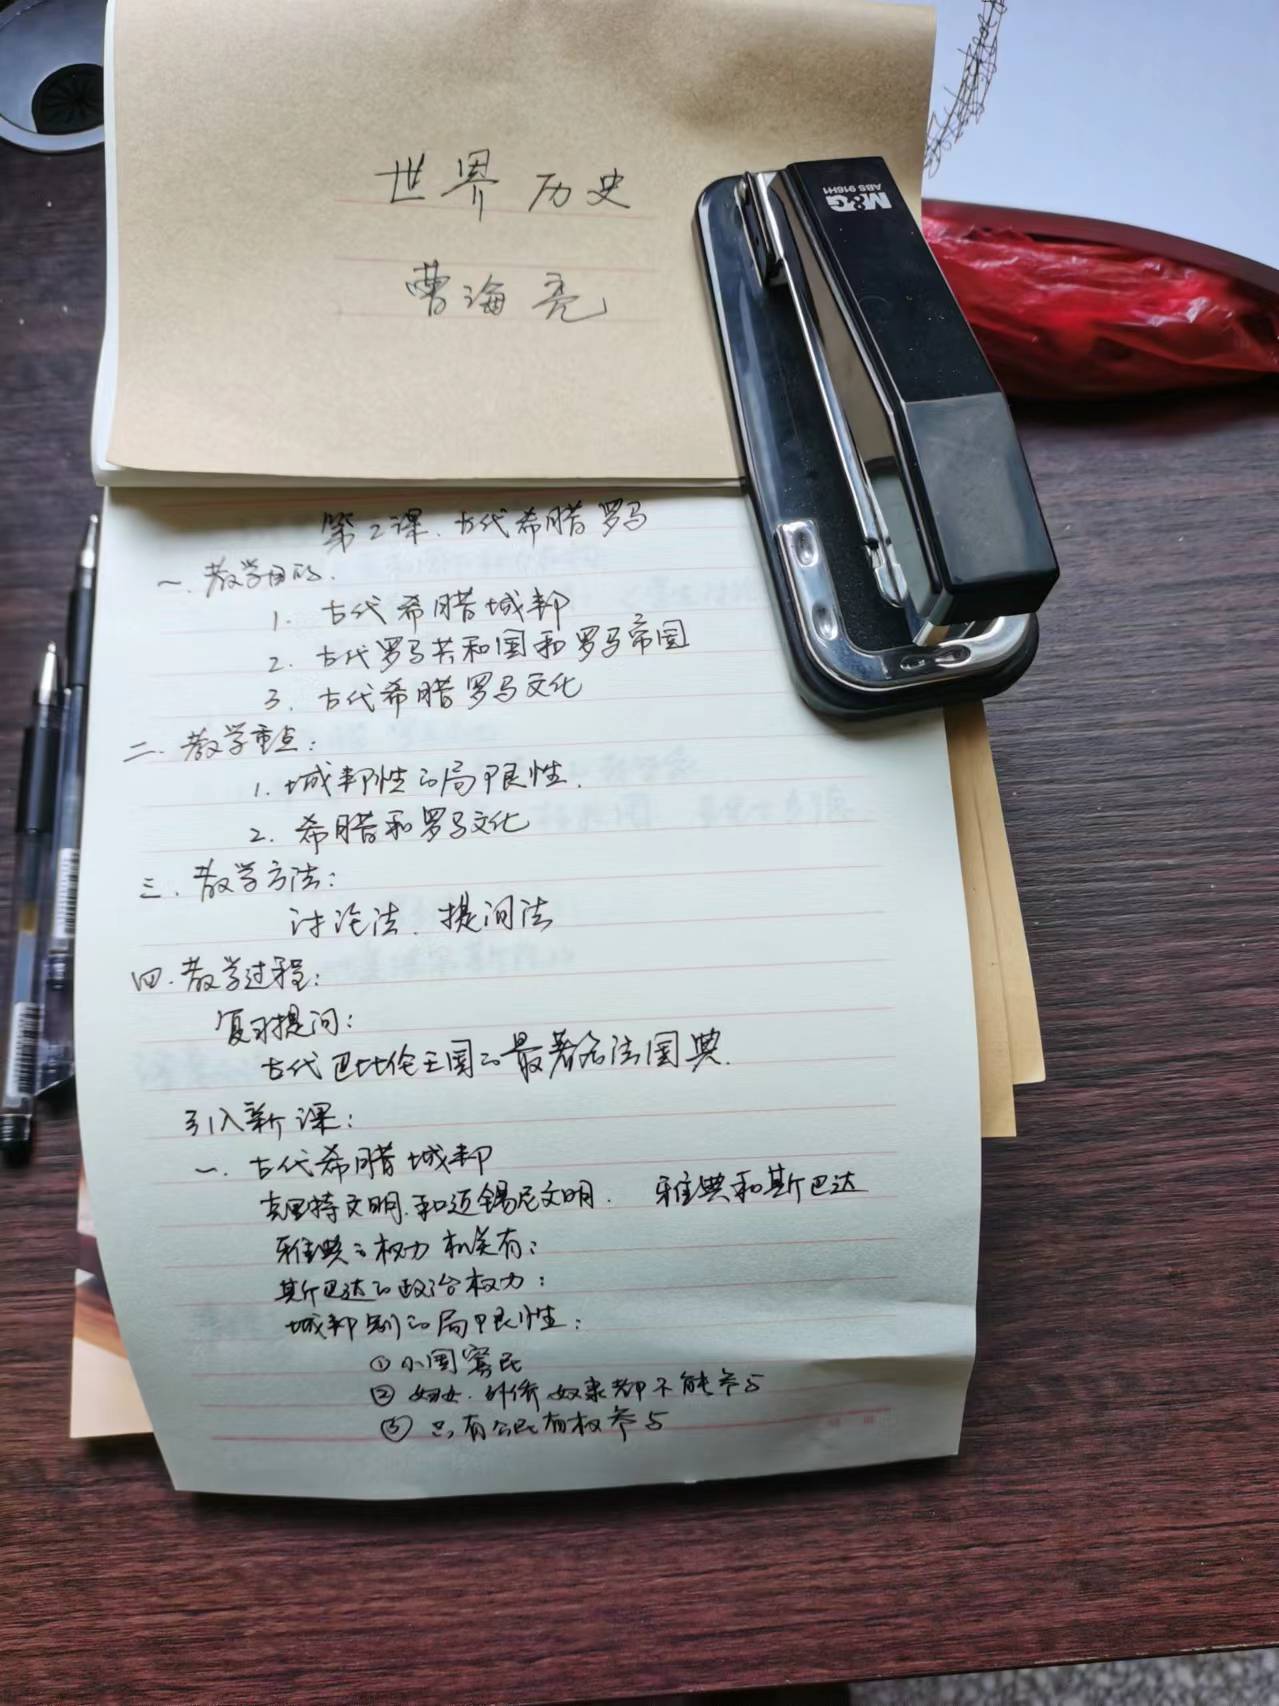 世界历史
曹海亮
M&G
ABS 916H1
第2课、古代希腊罗马
一、教学目的、
1. 古代希腊城邦
2. 古代罗马共和国和罗马帝国
3. 古代希腊罗马文化
二、教学重点：
1. 城邦性的局限性、
2. 希腊和罗马文化
三、教学方法：
讨论法、提问法
四、教学过程：
复习提问：
古代巴比伦王国的最著名法国典、
引入新课：
一、古代希腊城邦
克里特文明、和迈锡尼文明、 雅典和斯巴达
雅典的权力机关有：
斯巴达的政治权力：
城邦制的局限性：
① 小国寡民
② 妇女、外侨奴隶都不能参与
③ 只有公民有权参与